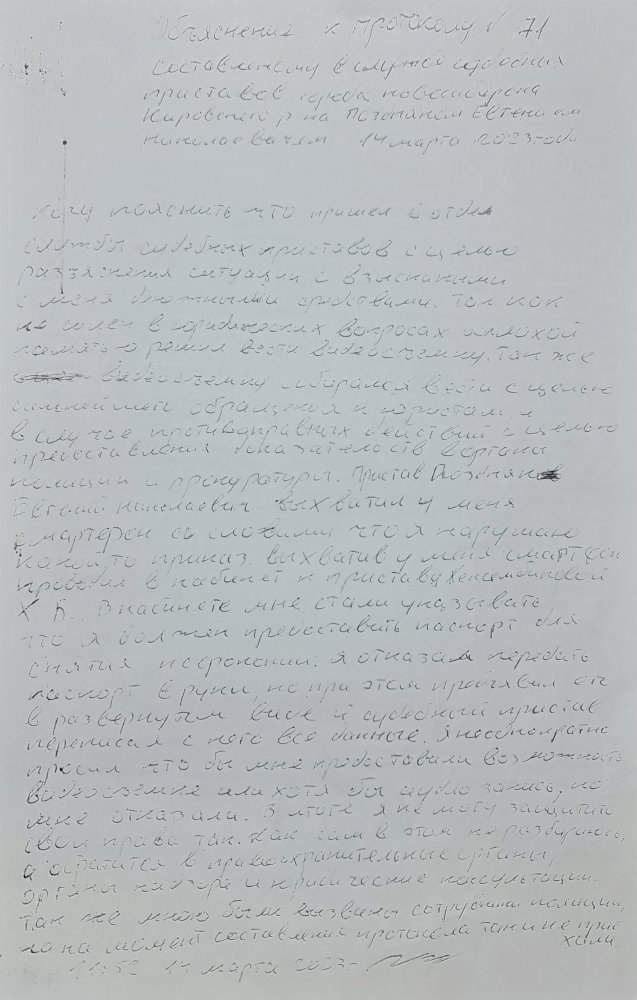 Объяснение к протоколу № 71
составленому в службе судебных
приставов города Новосибирска
Кировского р-на Поздняковым Евгением
Николаевичем 14 марта 2023 года
Хочу пояснить что пришел в отдел
службы судебных приставов с целью
разъяснения ситуации с взысканными
с меня денежными средствами. Так как
не силен в юридических вопросах и плохой
памятью решил вести видеосъемку. Так же
видеосъемку собирался вести с целью
дальнейшего обращения к юристам и
в случае противоправных действий с целью
предоставления доказательств в органы
полиции и прокуратуры. Пристав Поздняков
Евгений Николаевич выхватил у меня
смартфон со словами что я нарушаю
какой то приказ. Выхватив у меня смартфон
проводил в кабинет к приставу
Х. Б. В кабинете мне стали указывать
что я должен предоставить паспорт для
снятия ксерокопии. Я отказал передать
паспорт в руки, но при этом предъявил его
в развернутом виде и судебный пристав
переписал с него все данные. Я неоднократно
просил что бы мне предоставили возможность
видеосъемке или хотя бы аудио запись, но
мне отказали. В итоге я не могу защитить
свои права так как сам в этом не разбираюсь,
а обратится в правоохранительные органы,
органы надзора и юридические консультации.
Так же мною были вызваны сотрудники полиции,
но на момент составления протокола так и не прие
хали.
11:52 14 марта 2023г